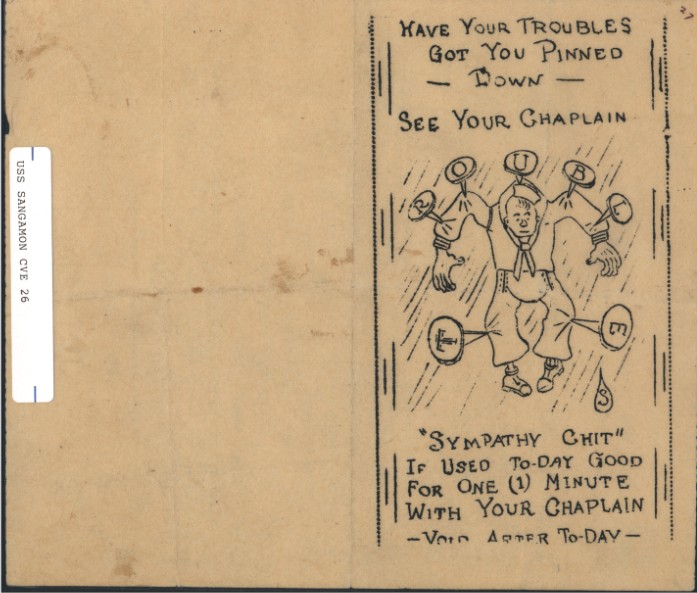 USS SANGAMON CVE 26
27
HAVE YOUR TROUBLES
GOT YOU PINNED
— DOWN —
SEE YOUR CHAPLAIN
T R O U B L E S
"SYMPATHY CHIT"
IF USED TO-DAY GOOD
FOR ONE (1) MINUTE
WITH YOUR CHAPLAIN
— VOID AFTER TO-DAY —